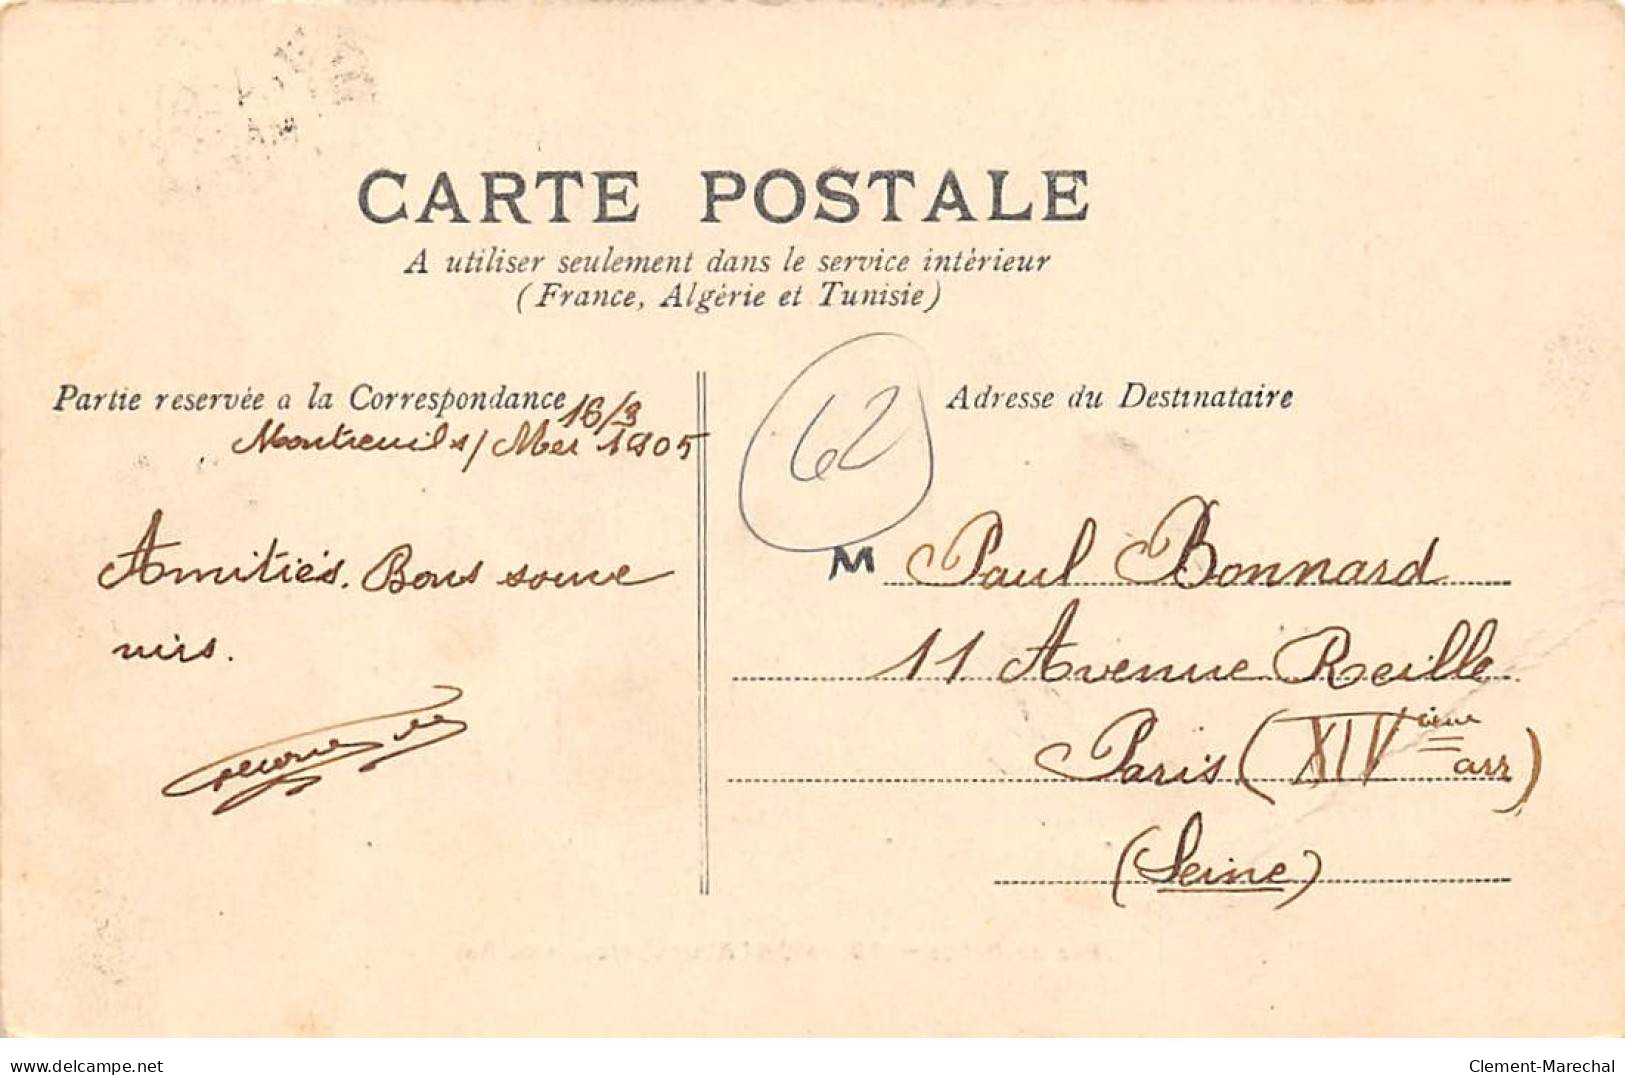 CARTE POSTALE
A utiliser seulement dans le service intérieur
(France, Algérie et Tunisie)
Partie reservée a la Correspondance
16/3
Montreuil s/ Mer 1905
Amitiés. Bons souve
nirs.
62
Adresse du Destinataire
M Paul Bonnard
11 Avenue Reille
Paris (XIV ième arr)
(Seine)
www.delcampe.net
Clement-Marechal